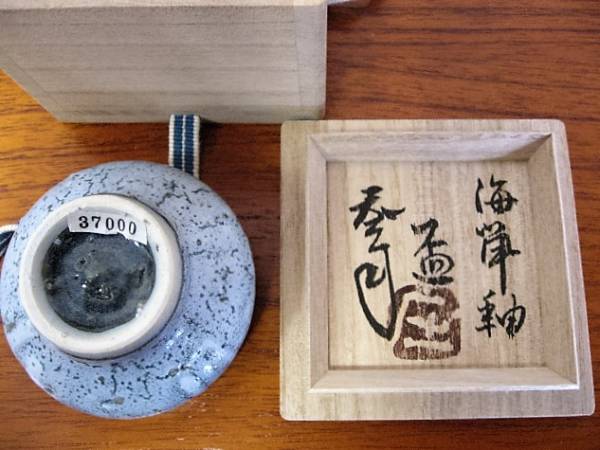 37000
海鼠釉
盃